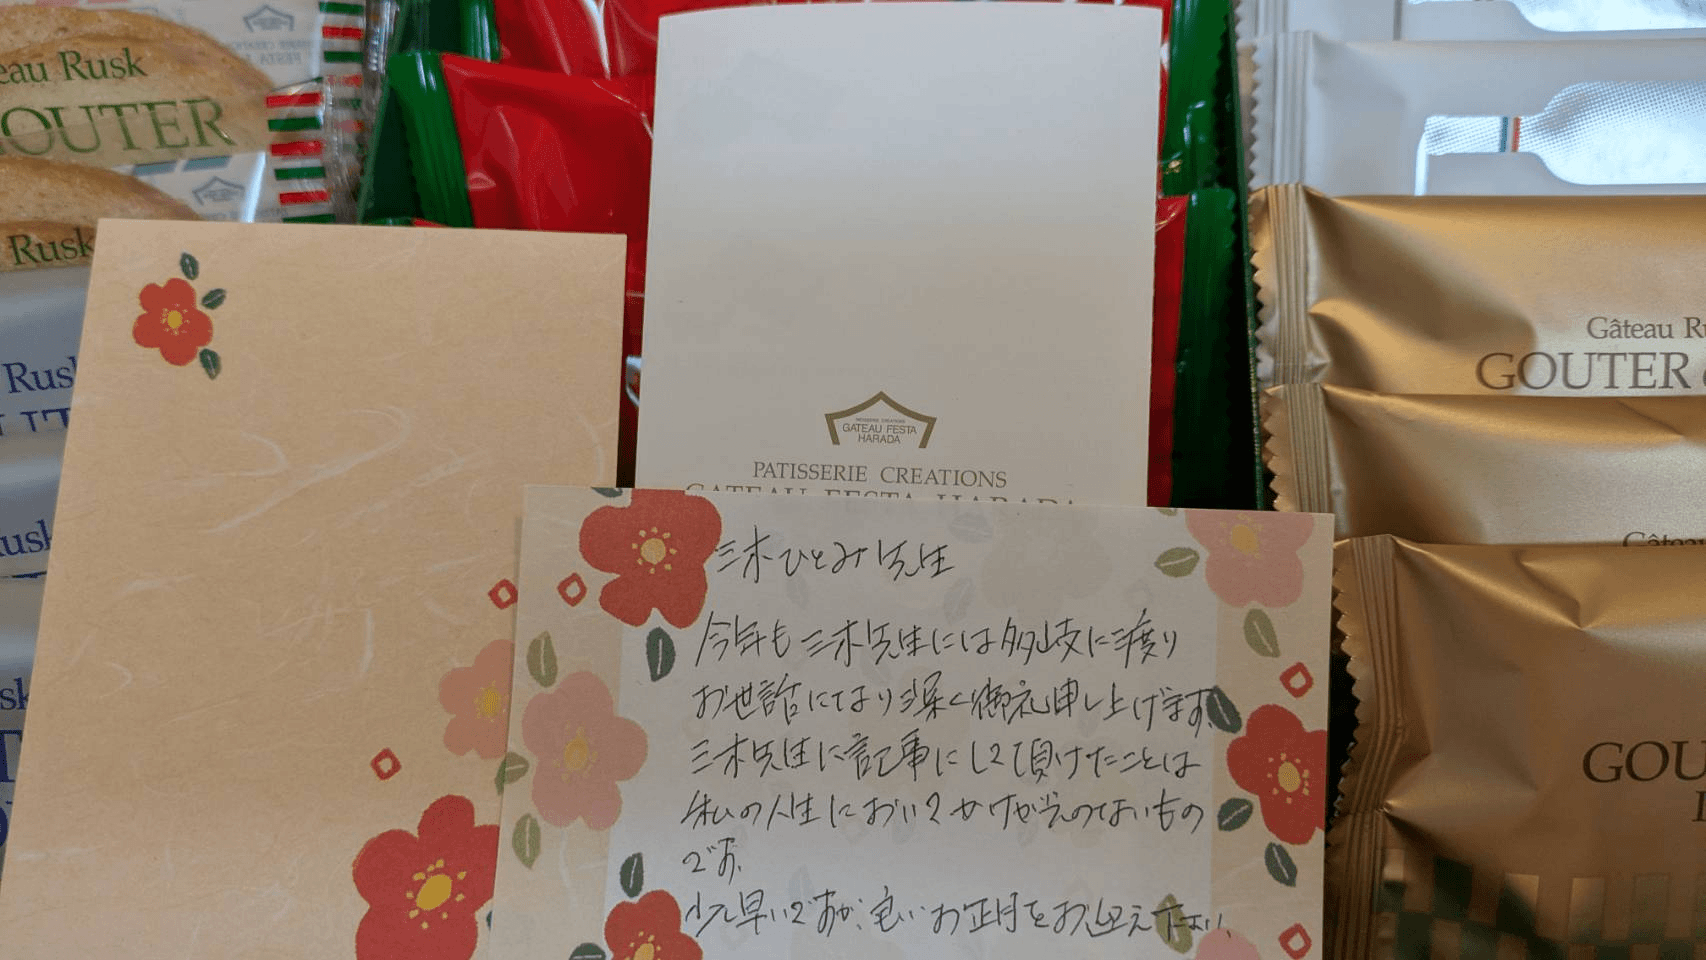 eau Rusk
OUTER
Rusk
Rusk
Rusk
GATEAU FESTA
HARADA
PATISSERIE CREATIONS
GATEAU FESTA HARADA
Gâteau Ru
GOUTER
Gâteau
GOU
三木ひとみ先生
今年も三木先生には多岐に渡り
お世話になり深く御礼申し上げます。
三木先生に記事にして頂けたことは
私の人生においてかけがえのないもの
です。
少し早いですが、良いお正月をお迎え下さい。